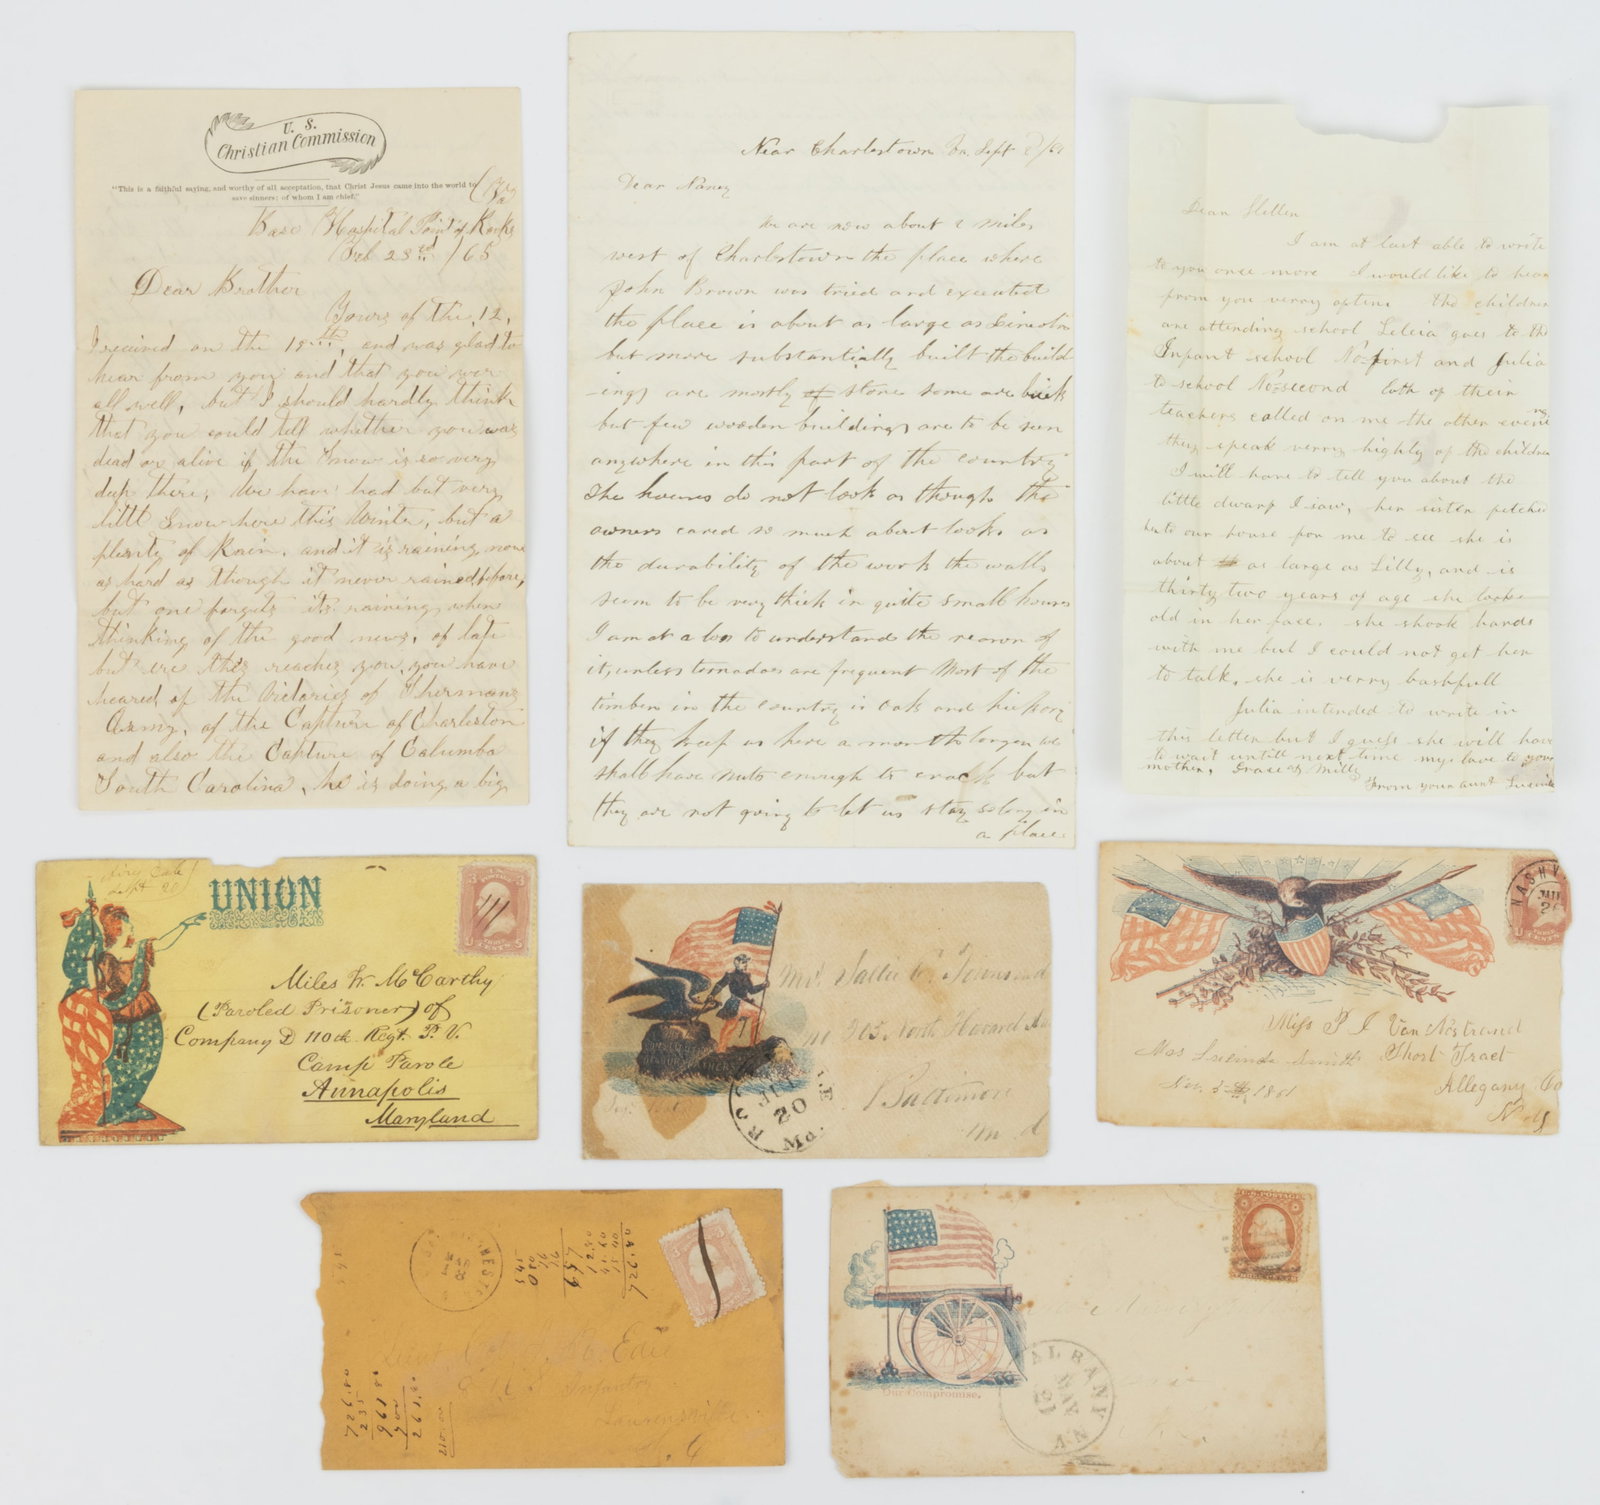 U. S.
Christian Commission
"This is a faithful saying, and worthy of all acceptation, that Christ Jesus came into the world to
save sinners; of whom I am chief."
Base Hospital Point of Rocks
Feb 23rd /65
Dear Brother
Yours of the 12,
I received on the 18th, and was glad to
hear from you and that you wer
all well, but I should hardly think
that you could tell whether you was
dead or alive if the Snow is so very
deep there, We have had but very
littl Snow here this Winter, but a
plenty of Rain, and it is raining now
as hard as though it never rained before,
but one forgets its raining when
thinking of the good news, of late
but ere this reaches you you have
heared of the Victories of Shermans
Army, of the Capture of Charleston
and also the Capture of Columba
South Carolina, he is doing a big
Near Charlestown Va. Sept
Dear Nancy
We are now about 2 miles
west of Charlestown the place where
John Brown was tried and executed
the place is about as large as Lincoln
but more substantially built the build
-ings are mostly of stone some are brick
but few wooden buildings are to be seen
anywhere in this part of the country
The houses do not look as though the
owners cared so much about looks as
the durability of the work the walls
seem to be very thick in quite small houses
I am at a loss to understand the reason of
it, unless tornadoes are frequent Most of the
timber in the country is Oak and hickory
if they keep us here a month longer we
shall have nuts enough to crack but
they are not going to let us stay so long in
a place
Dear Hellen
I am at last able to write
to you once more I would like to hear
from you verry often. the children
are attending school Lilcia goes to the
Infant school No=first and Julia
to school No=second both of their
teachers called on me the other evening
they speak verry highly of the children
I will have to tell you about the
little dwarf I saw, her sister fetched
her to our house for me to see she is
about as large as Lilly, and is
thirty two years of age she looks
old in her face. she shook hands
with me but I could not get her
to talk, she is verry bashfull
Julia intended to write in
this letter but I guess she will have
to wait untill next time my love to your
mother, Grace & Milly
From your aunt Lucinda
Sept 20
UNION
U.S. POSTAGE
THREE CENTS
Miles W. McCarthy
(Paroled Prisoner) of
Company D 110th Regt. P. V.
Camp Parole
Annapolis
Maryland
Mrs. Sallie E. Townsend
No 365 North Howard
Baltimore
Md
20
Md.
NASHV
JAN
Miss P J Van Nostrand
Short Tract
Allegany Co
N. Y
Mrs Lucinda Smith
Nov 5th 1861
545
657
12.80
41.60
15.40
726.80
726.80
235
961.80
700
261.80
210.00
Lieut
Infantry
Laurensville
S. C
Our Compromise.
U.S. POSTAGE
THREE CENTS
ALBANY
MAY
21
N.Y.